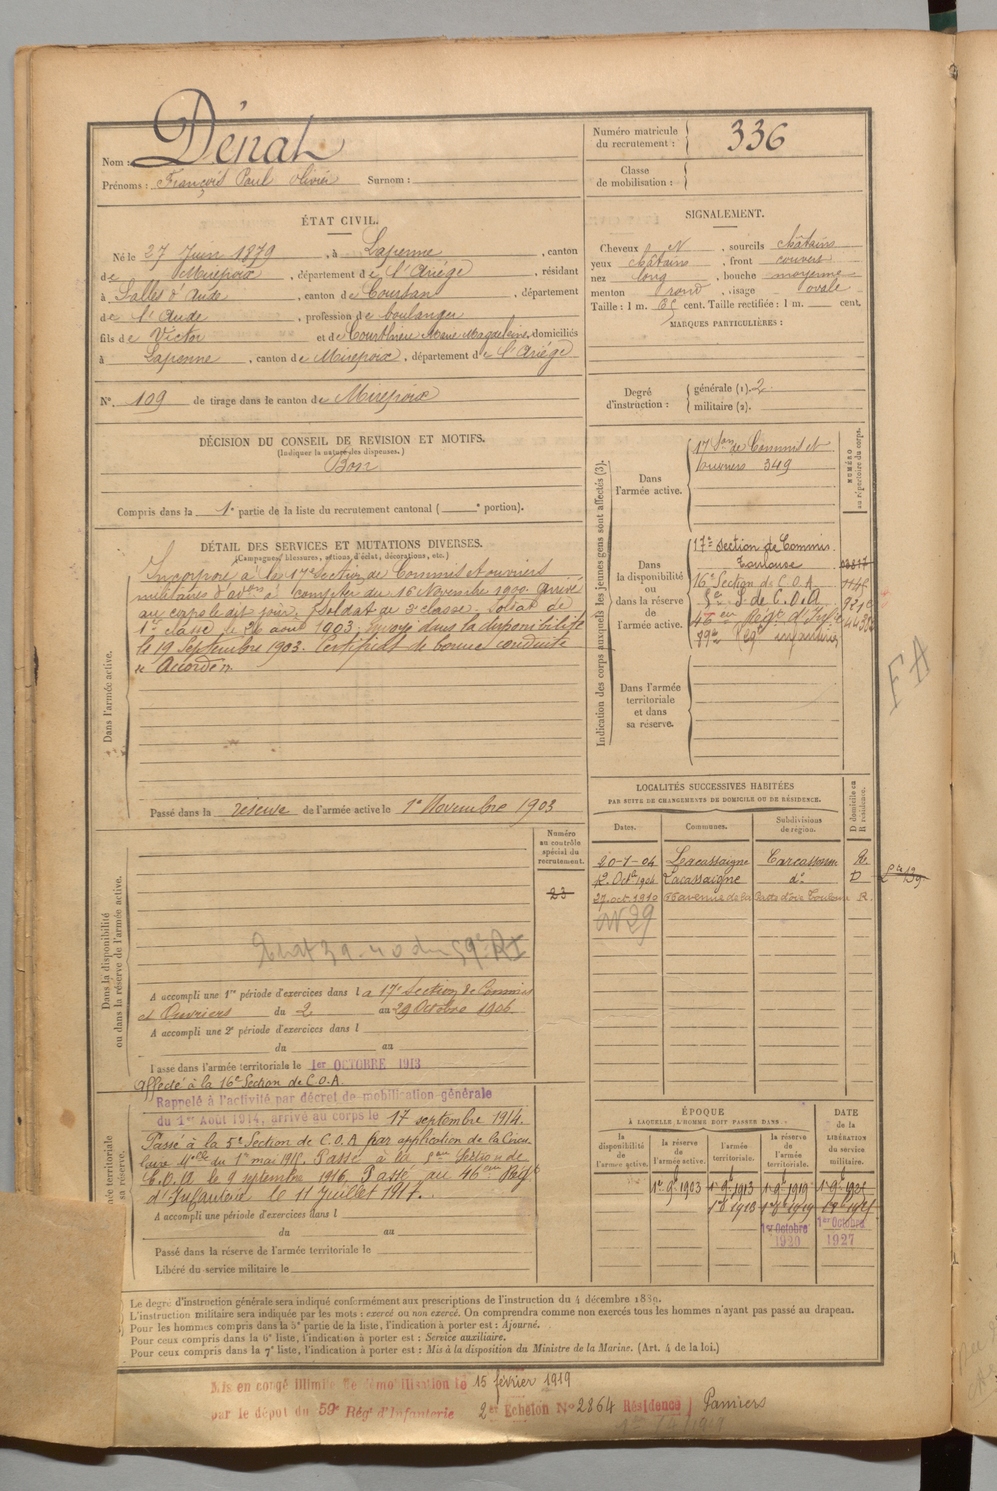 Nom : Dénat
Prénoms : François Paul Olivier Surnom :
Numéro matricule du recrutement : 336
Classe de mobilisation :
ÉTAT CIVIL.
Né le 27 Juin 1879, à Lapenne, canton
de Mirepoix, département de l'Ariège, résidant
à Salles d'Aude, canton de Coursan, département
de l'Aude, profession de boulanger
fils de Victor et de Marie Magdeleine, domiciliés
à Lapenne, canton de Mirepoix, département de l'Ariège
N° 109 de tirage dans le canton de Mirepoix
SIGNALEMENT.
Cheveux N, sourcils châtains
yeux châtains, front couvert
nez long, bouche moyenne
menton rond, visage ovale
Taille : 1 m. 65 cent. Taille rectifiée : 1 m. cent.
MARQUES PARTICULIÈRES :
Degré d'instruction : générale (1). 2
militaire (2).
DÉCISION DU CONSEIL DE REVISION ET MOTIFS.
(Indiquer la nature des dispenses.)
Bon
Compris dans la 1e partie de la liste du recrutement cantonal ( e portion).
DÉTAIL DES SERVICES ET MUTATIONS DIVERSES.
(Campagnes, blessures, actions d'éclat, décorations, etc.)
Dans l'armée active.
Incorporé à la 17e Section de Commis et ouvriers
militaires d'adon à compter du 16 Novembre 1900. Arrivé
au corps le dit jour. Soldat de 2e classe. Soldat de
1re classe le 21 août 1903. Envoyé dans la disponibilité
le 19 Septembre 1903. Certificat de bonne conduite
"Accordé".
Passé dans la réserve de l'armée active le 1er Novembre 1903
Indication des corps auxquels les jeunes gens sont affectés (3).
NUMÉRO au répertoire du corps.
Dans l'armée active.
17e Son de Commis et
ouvriers 349
Dans la disponibilité ou dans la réserve de l'armée active.
17e Section de Commis.
Toulouse
16e Section de C.O.A
5e S. de C.O.A
46ème Régt d'Infie
Dans l'armée territoriale et dans sa réserve.
FA
LOCALITÉS SUCCESSIVES HABITÉES
PAR SUITE DE CHANGEMENTS DE DOMICILE OU DE RÉSIDENCE.
D domicile ou R résidence.
Dates. Communes. Subdivisions de région.
20-1-04 Lacassaigne Carcassonne R.
Oct 1904 Lacassaigne do D
27 oct 1910 Patte d'oie Toulouse R.
Numéro au contrôle spécial du recrutement.
23
Dans la disponibilité ou dans la réserve de l'armée active.
A accompli une 1re période d'exercices dans la 17e Section de Commis
et Ouvriers du 2 au 29 Octobre 1906.
A accompli une 2e période d'exercices dans l
du au
Passé dans l'armée territoriale le 1er OCTOBRE 1913
Affecté à la 16e Section de C.O.A.
Rappelé à l'activité par décret de mobilisation générale
du 1er Août 1914, arrivé au corps le 17 septembre 1914.
Passé à la 5e Section de C.O.A par application de la Circu
laire Mlle du 1er mai 1915. Passé à la Section de
C.O.A le 9 septembre 1916. Passé au 46ème Régt
d'Infanterie le 11 Juillet 1917.
A accompli une période d'exercices dans l
du au
Passé dans la réserve de l'armée territoriale le
Libéré du service militaire le
ÉPOQUE
À LAQUELLE L'HOMME DOIT PASSER DANS
la disponibilité de l'armée active.
la réserve de l'armée active.
l'armée territoriale.
la réserve de l'armée territoriale.
DATE de la LIBÉRATION du service militaire.
1er 9bre 1903 1er 9bre 1913 1er 9bre 1919
1er 8bre 1913 1er 8bre 1919
1er Octobre 1920
1er Octobre 1927
Le degré d'instruction générale sera indiqué conformément aux prescriptions de l'instruction du 4 décembre 1889.
L'instruction militaire sera indiquée par les mots : exercé ou non exercé. On comprendra comme non exercés tous les hommes n'ayant pas passé au drapeau.
Pour les hommes compris dans la 5e partie de la liste, l'indication à porter est : Ajourné.
Pour ceux compris dans la 6e liste, l'indication à porter est : Service auxiliaire.
Pour ceux compris dans la 7e liste, l'indication à porter est : Mis à la disposition du Ministre de la Marine. (Art. 4 de la loi.)
Mis en congé illimité de démobilisation le 15 février 1919
par le dépôt du 59e Rég' d'Infanterie 2e Echelon No 2864 Résidence Pamiers